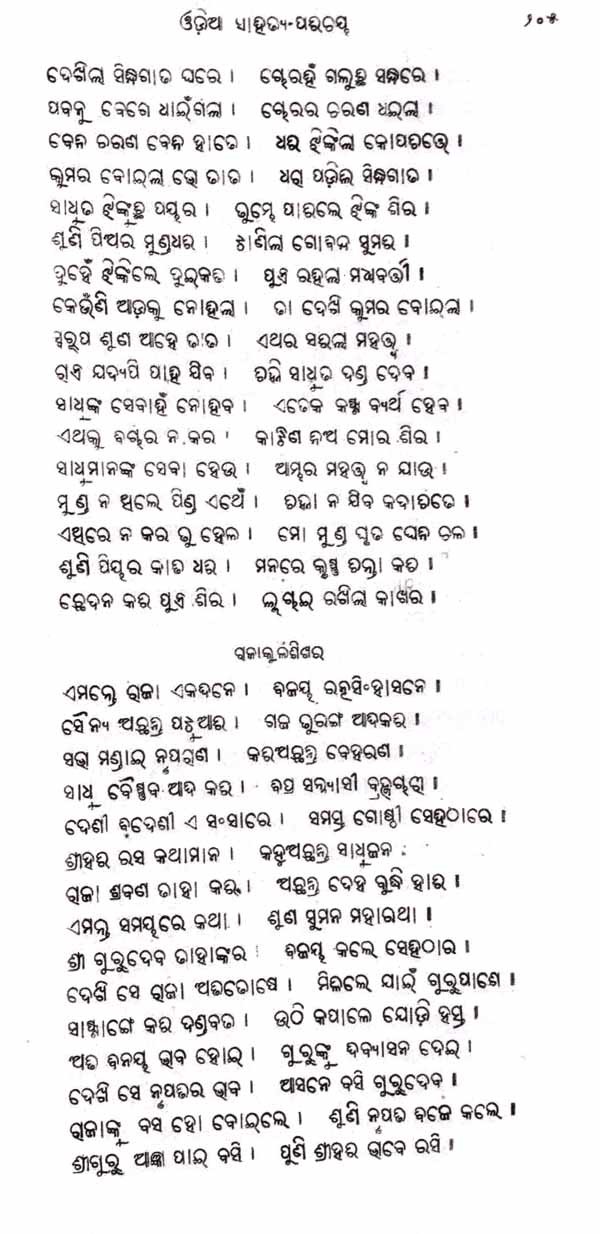 ଓଡ଼ିଆ ସାହିତ୍ୟ-ପରିଚୟ ୨୦୫
ଦେଖିଲା ସିନ୍ଧିଗାତ ଘରେ । ଚୋରହିଁ ଗଳୁଛି ସନ୍ଧିରେ ।
ପବନୁ ବେଗେ ଧାଇଁଗଲା । ଚୋରର ଚରଣ ଧଇଲା ।
ବେନି ଚରଣ ବେନି ହାତେ । ଧରି ଝିଙ୍କିଲା କୋପଚିତ୍ତେ ।
କୁମର ବୋଇଲା ଭୋ ତାତ । ଧରା ପଡ଼ିଲି ସିନ୍ଧିଗାତ ।
ସାଧୁତ ଝିଙ୍କୁଛି ପୟର । ତୁମ୍ଭେ ପାରିଲେ ଝିଙ୍କ ଶିର ।
ଶୁଣି ପିଅର ମୁଣ୍ଡଧରି । ଟାଣିଲା ଗୋବିନ୍ଦ ସୁମରି ।
ଦୁହେଁ ଝିଙ୍କିଲେ ଦୁଇକତି । ପୁତ୍ର ରହିଲା ମଧ୍ୟବର୍ତ୍ତୀ ।
କେଉଁଣି ଆଡ଼କୁ ନୋହିଲା । ତା ଦେଖି କୁମର ବୋଇଲା ।
ସ୍ୱରୂପ ଶୁଣ ଆହେ ତାତ । ଏଥର ସରିଲା ମହତ୍ତ୍ୱ ।
ରାତ୍ର ଯଦ୍ୟପି ପାହି ଯିବ । ଚିହ୍ନି ସାଧୁତ ଦଣ୍ଡ ଦେବ ।
ସାଧୁଙ୍କ ସେବାହିଁ ନୋହିବ । ଏତେକ କଷ୍ଟ ବ୍ୟର୍ଥ ହେବ ।
ଏଥକୁ ବିଚାର ନ କର । କାଟିଣ ନିଅ ମୋର ଶିର ।
ସାଧୁମାନଙ୍କ ସେବା ହେଉ । ଆମ୍ଭର ମହତ୍ତ୍ୱ ନ ଯାଉ ।
ମୁଣ୍ଡ ନ ଥିଲେ ପିଣ୍ଡ ଏଥେଁ । ଚିହ୍ନା ନ ଯିବ କଦାଚିତେ ।
ଏଥିରେ ନ କର ତୁ ହେଳ । ମୋ ମୁଣ୍ଡ ଘୃତ ଘେନି ଚଳ ।
ଶୁଣି ପିୟର କାତି ଧରି । ମନରେ କୃଷ୍ଣ ଚିନ୍ତା କରି ।
ଛେଦନ କରି ପୁତ୍ର ଶିର । ଲୁଚାଇ ରଖିଲା କାଖର ।
ରାଜାକୁଳଶିଖର
ଏମନ୍ତେ ରାଜା ଏକଦିନେ । ବିଜୟ ରତ୍ନସିଂହାସନେ ।
ସୈନ୍ୟ ଅଛନ୍ତି ପଟୁଆରି । ଗଜ ତୁରଙ୍ଗ ଆଦିକରି ।
ସଭା ମଣ୍ଡାଇ ନୃପରାଣ । କରିଅଛନ୍ତି ବେହରଣ ।
ସାଧୁ ବୈଷ୍ଣବ ଆଦି କରି । ବିପ୍ର ସନ୍ନ୍ୟାସୀ ବ୍ରହ୍ମଚାରୀ ।
ଦେଶୀ ବିଦେଶୀ ଏ ସଂସାରେ । ସମସ୍ତ ଗୋଷ୍ଠୀ ସେହିଠାରେ ।
ଶ୍ରୀହରି ରସ କଥାମାନ । କହୁଅଛନ୍ତି ସାଧୁଜନ ।
ରାଜା ଶ୍ରବଣ ତାହା କରି । ଅଛନ୍ତି ଦେହ ବୁଦ୍ଧି ହାରି ।
ଏମନ୍ତ ସମୟରେ କଥା । ଶୁଣ ସୁମନ ମହାରଥା ।
ଶ୍ରୀ ଗୁରୁଦେବ ତାହାଙ୍କର । ବିଜୟ କଲେ ସେହିଠାର ।
ଦେଖି ସେ ରାଜା ଅତିତୋଷେ । ମିଳିଲେ ଯାଇଁ ଗୁରୁପାଶେ ।
ସାଷ୍ଟାଙ୍ଗେ କରି ଦଣ୍ଡବତ । ଉଠି କପାଳେ ଯୋଡ଼ି ହସ୍ତ ।
ଅତି ବିନୟ ଭାବ ହୋଇ । ଗୁରୁଙ୍କୁ ଦିବ୍ୟାସନ ଦେଇ ।
ଦେଖି ସେ ନୃପତିର ଭାବ । ଆସନେ ବସି ଗୁରୁଦେବ ।
ରାଜାଙ୍କୁ ବସ ହୋ ବୋଇଲେ । ଶୁଣି ନୃପତି ବିଜେ କଲେ ।
ଶ୍ରୀଗୁରୁ ଆଜ୍ଞା ପାଇ ବସି । ପୁଣି ଶ୍ରୀହରି ଭାବେ ରସି ।